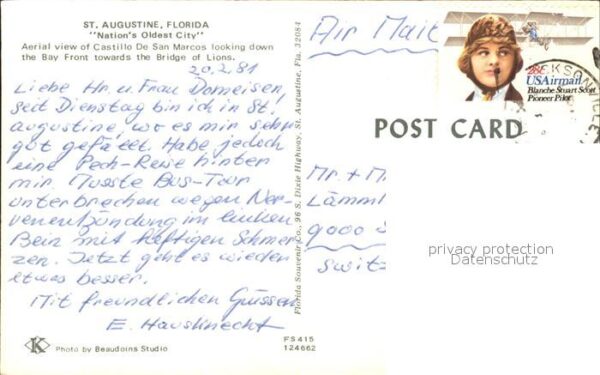 ST. AUGUSTINE, FLORIDA
"Nation's Oldest City"
Aerial view of Castillo De San Marcos looking down
the Bay Front towards the Bridge of Lions.
20.2.81
Liebe Hr. u. Frau Domeisen,
seit Dienstag bin ich in St.
Augustine, wo es mir sehr
gut gefällt. Habe jedoch
eine Pech-Reise hinter
mir. Musste Bus-Tour
unterbrechen wegen Ner-
venentzündung im linken
Bein mit heftigen Schmer-
zen. Jetzt geht es wieder
etwas besser.
Mit freundlichen Grüssen
E. Hausknecht
K
Photo by Beaudoins Studio
FS415
124662
Florida Souvenir Co., 36 S. Dixie Highway, St. Augustine, Fla. 32084
Air Mail
28c
USAirmail
Blanche Stuart Scott
Pioneer Pilot
KSONVILLE
POST CARD
Mr. + M
Lämml
9000 S
Switz
privacy protection
Datenschutz